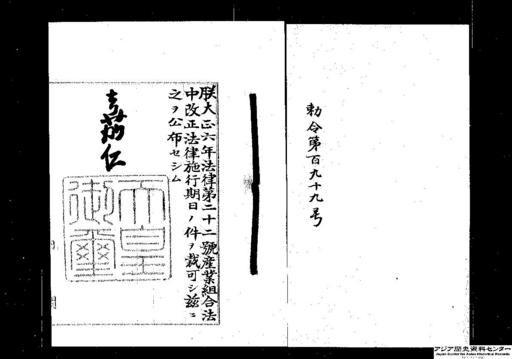 勅令第百九十九号
朕大正六年法律第二十二號産業組合法
中改正法律施行期日ノ件ヲ裁可シ茲ニ
之ヲ公布セシム
嘉仁
天皇
御璽
アジア歴史資料センター
Japan Center for Asian Historical Records